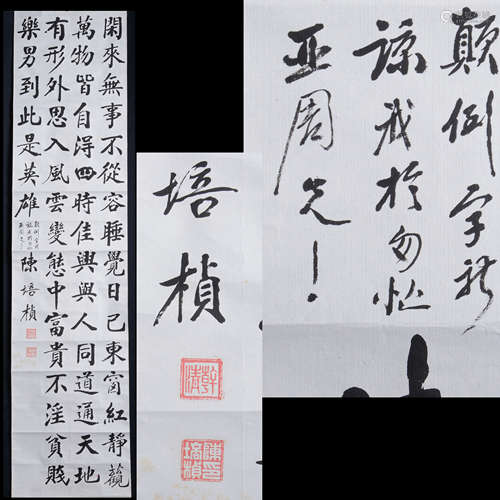 閑來無事不從容睡覺日已東窗紅靜觀
萬物皆自得四時佳興與人同道通天地
有形外思入風雲變態中富貴不淫貧賤
樂男到此是英雄
顛倒字祈
諒我於匆忙
亞周兄！
陳培楨
培楨
陳培楨印
顛倒字祈
諒我於匆忙
亞周兄！